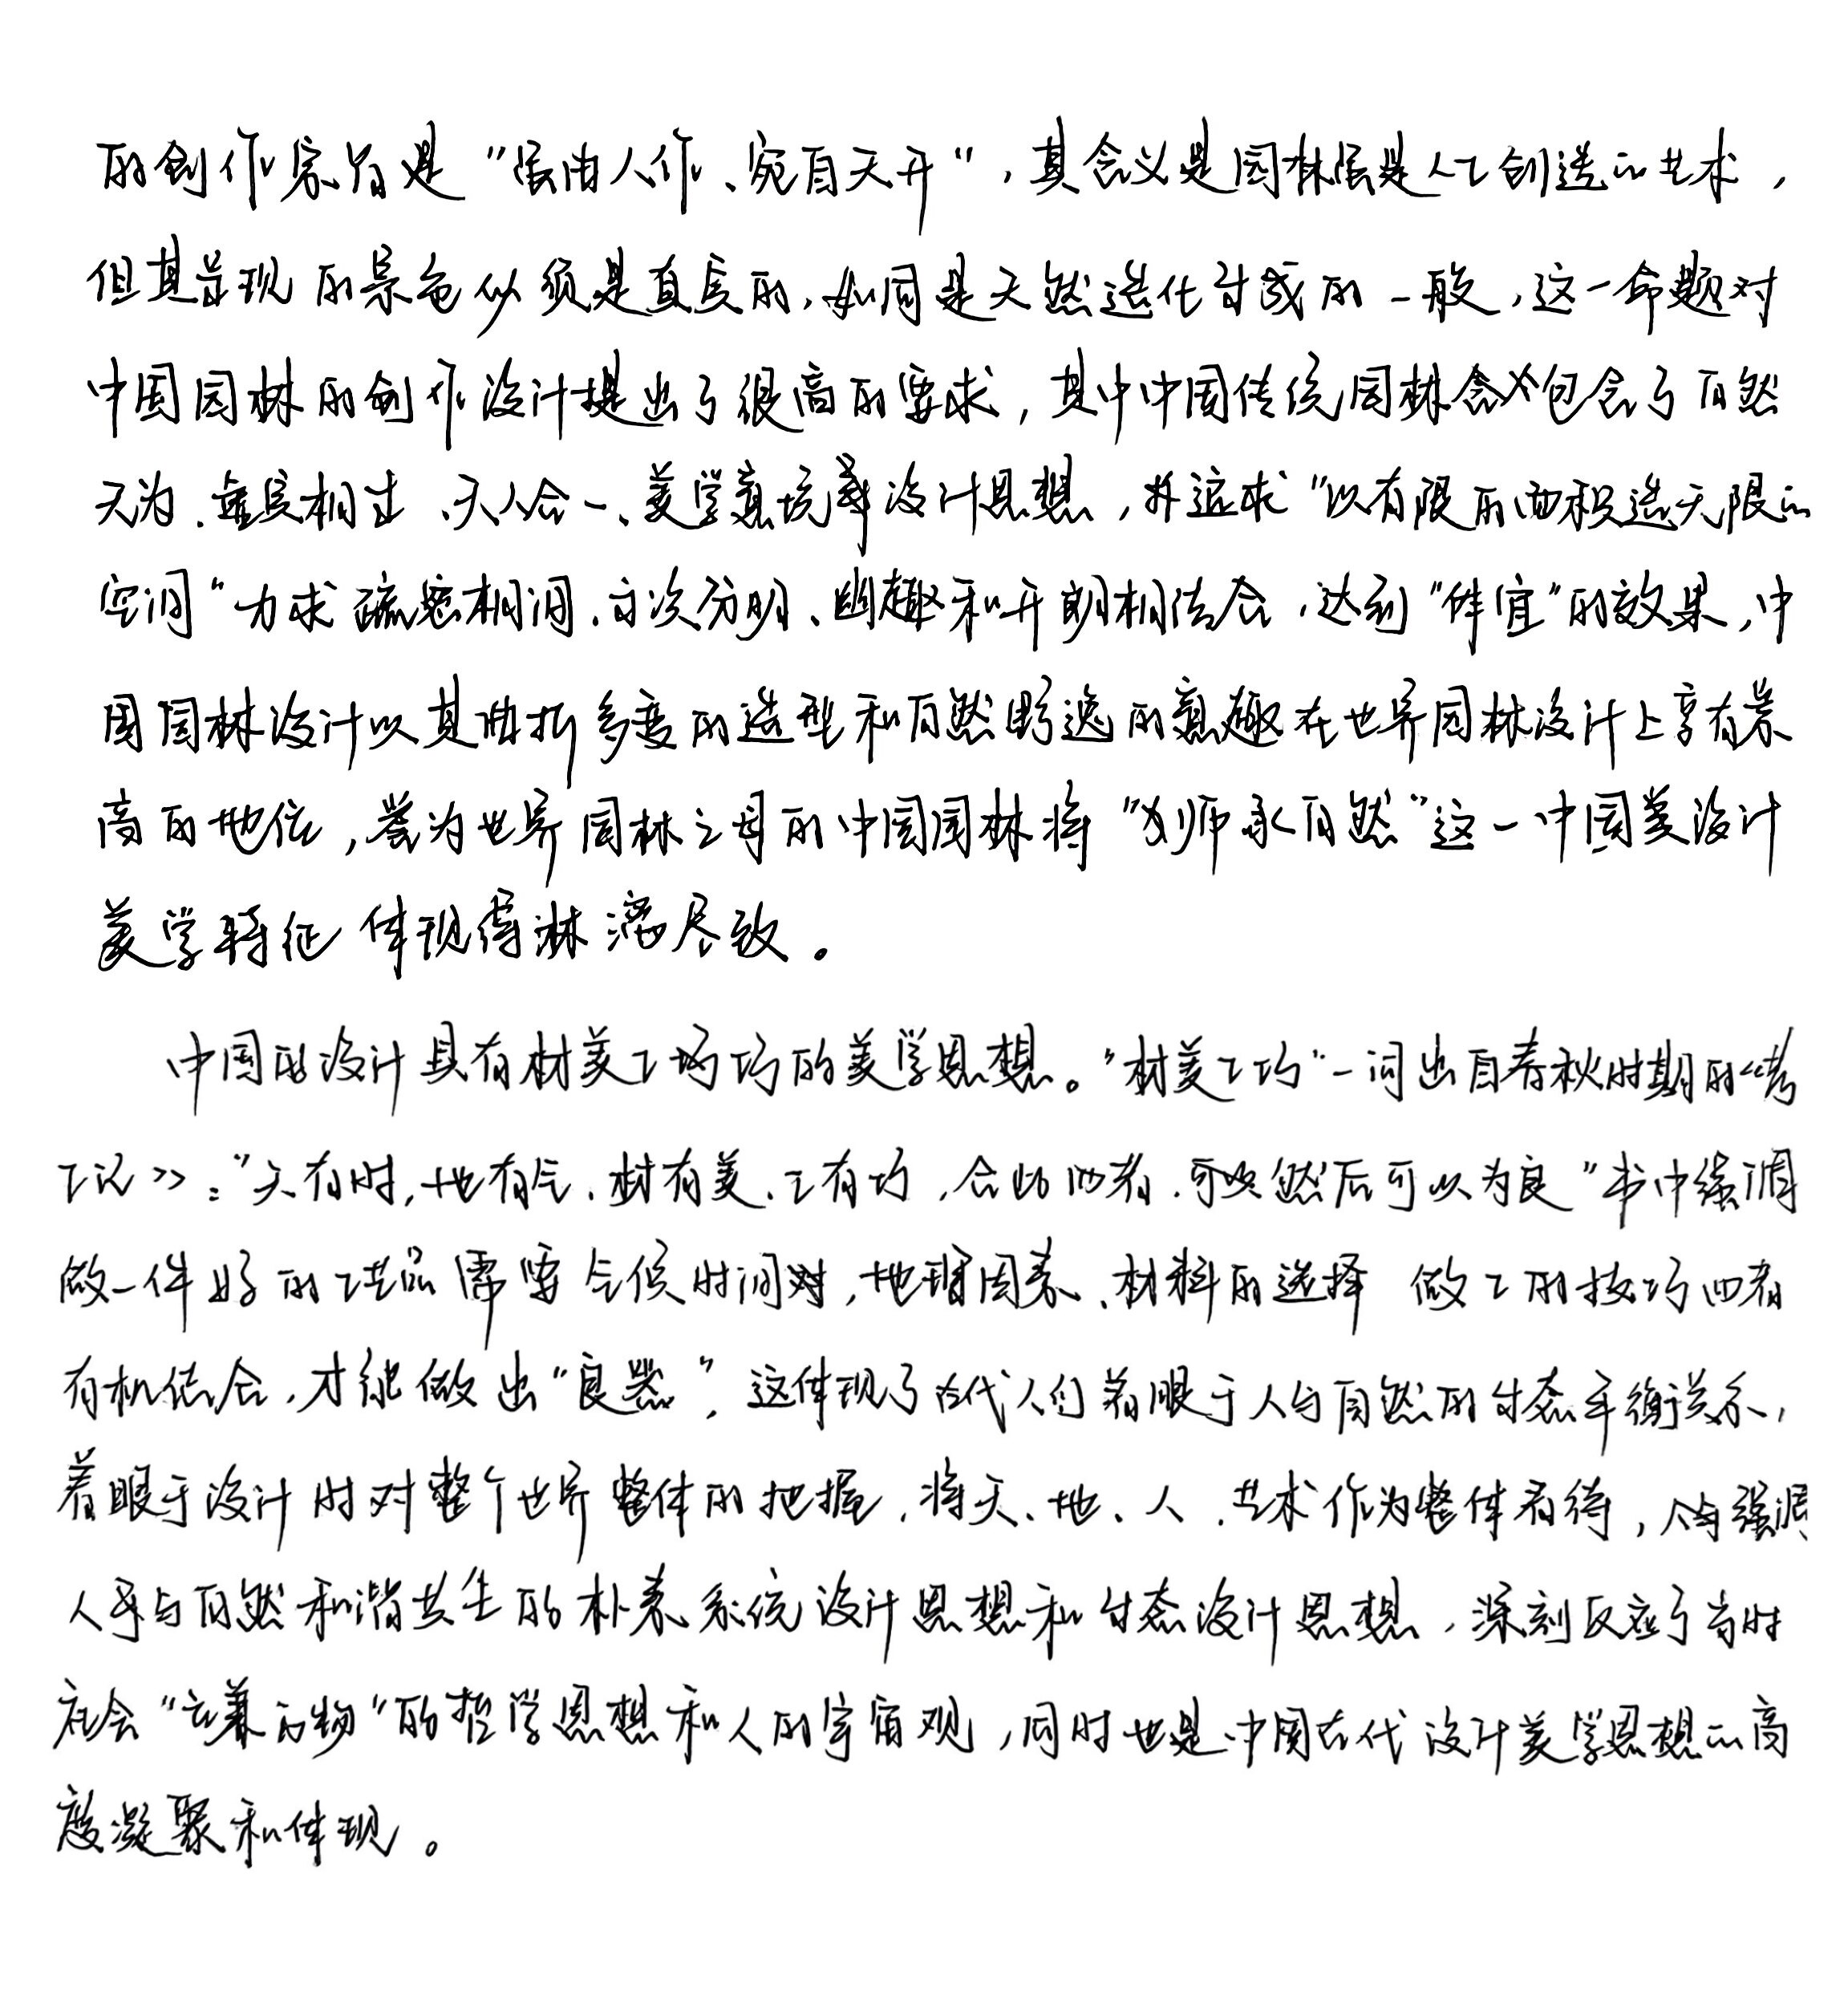 的创作宗旨是“虽由人作、宛自天开”，其含义是园林虽是人工创造的艺术，
但其呈现的景色必须是真实的，如同是天然造化生成的一般，这一命题对
中国园林的创作设计提出了很高的要求，其中中国传统园林含义包含了自然
无为、虚实相生、天人合一、美学意境等设计思想，并追求“以有限的面积造无限的
空间”力求疏密相间、主次分明、幽趣和开朗相结合，达到“体宜”的效果，中
国园林设计以其曲折多变的造型和自然野逸的意趣在世界园林设计上享有崇
高的地位，誉为世界园林之母的中国园林将“师承自然”这一中国美设计
美学特征体现得淋漓尽致。
中国的设计具有材美工巧的美学思想。“材美工巧”一词出自春秋时期的《考
工记》：“天有时，地有气、材有美、工有巧，合此四者，然后可以为良”书中强调
做一件好的工艺品需要气候时间，地理因素、材料的选择 做工的技巧四者
有机结合，才能做出“良器”，这体现了古代人们着眼于人与自然的生态平衡关系，
着眼于设计时对整个世界整体的把握，将天、地、人、艺术作为整体看待，强调
人与自然和谐共生的朴素系统设计思想和生态设计思想，深刻反应了当时
社会“兼万物”的哲学思想和人的宇宙观，同时也是中国古代设计美学思想的高
度凝聚和体现。